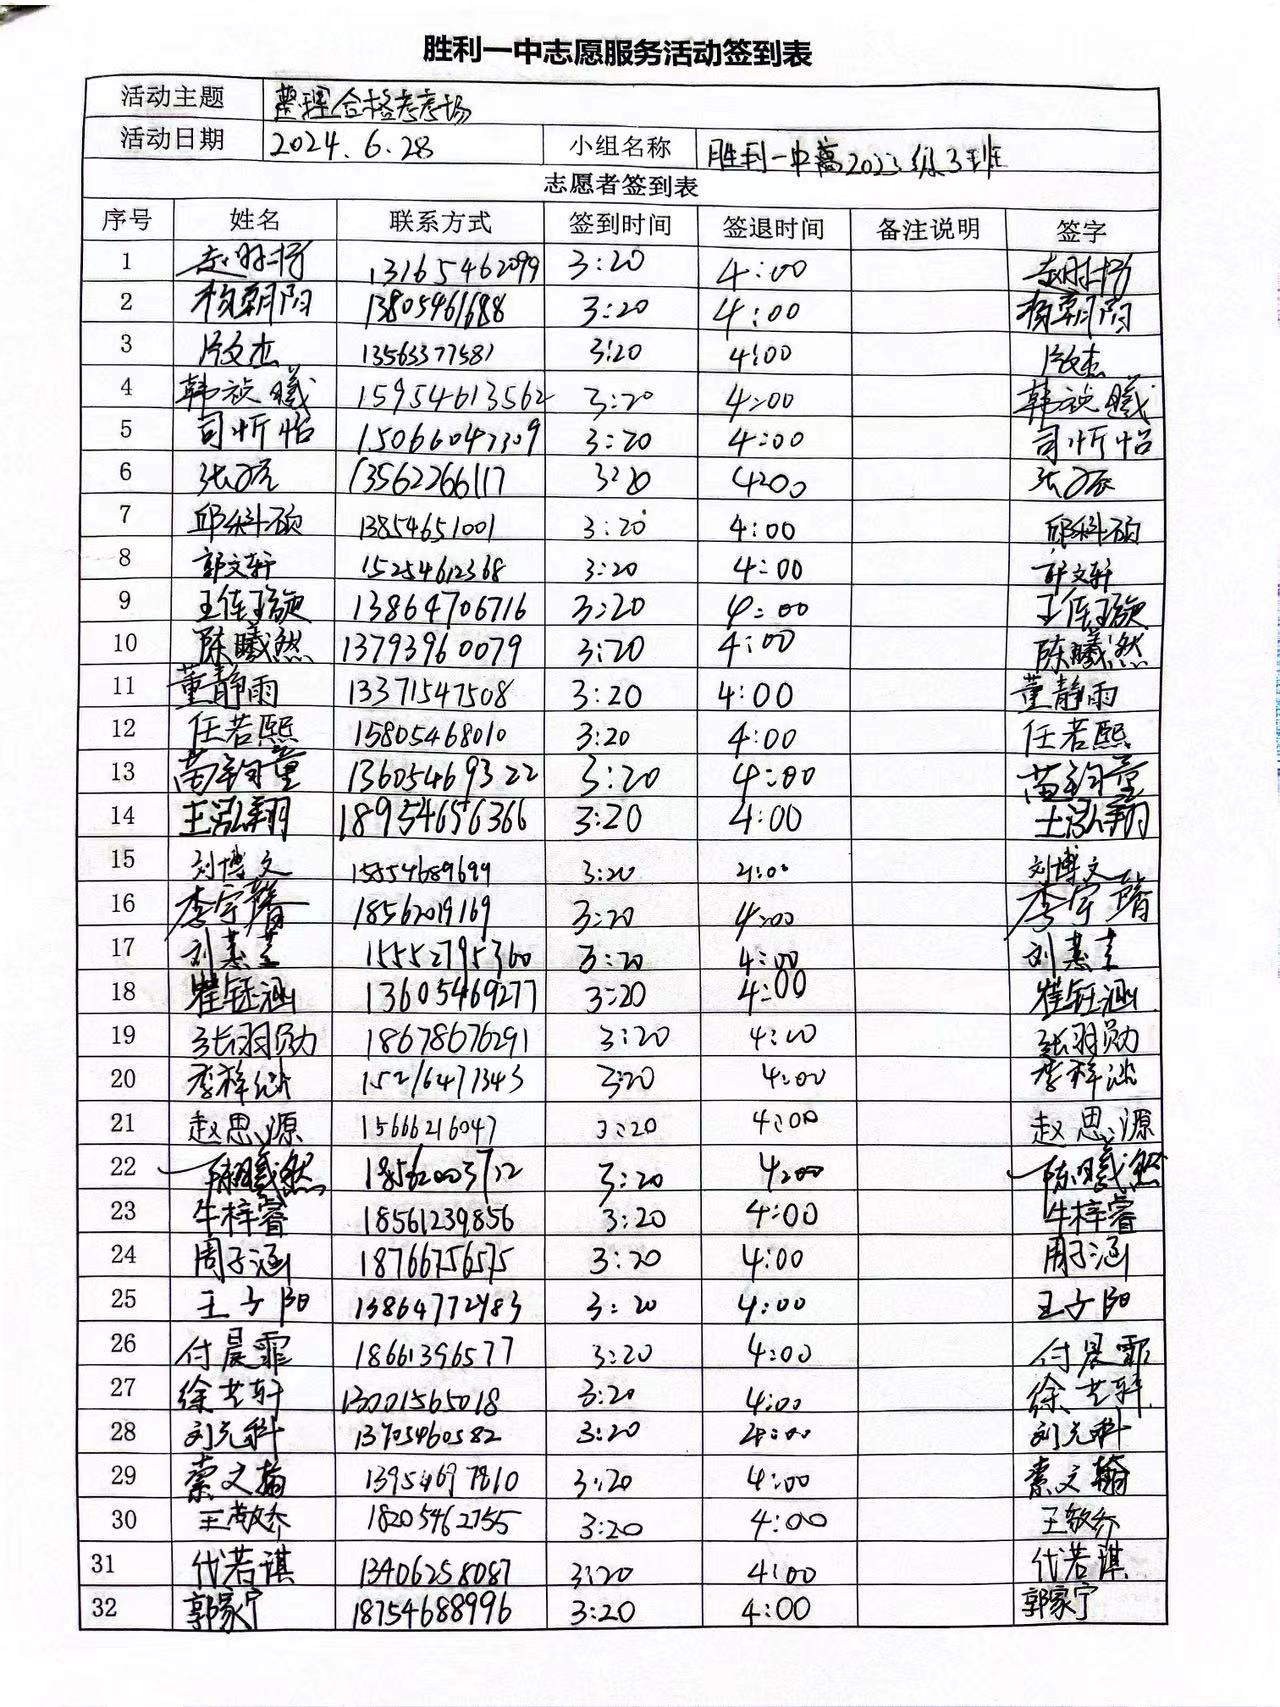 胜利一中志愿服务活动签到表
活动主题 整理合格考考场
活动日期 2024.6.28 小组名称 胜利一中高2023级3班
志愿者签到表
序号 姓名 联系方式 签到时间 签退时间 备注说明 签字
1 13165462099 3:20 4:00
2 杨朝阳 13805461688 3:20 4:00 杨朝阳
3 片文杰 13563377581 3:20 4:00 片文杰
4 韩祯曦 15954613562 3:20 4:00 韩祯曦
5 司忻怡 15066047309 3:20 4:00 司忻怡
6 13562266117 3:20 4:00
7 邱科硕 13854651001 3:20 4:00 邱科硕
8 郭文轩 15254612368 3:20 4:00 郭文轩
9 王佳璇 13864706716 3:20 4:00 王佳璇
10 陈曦然 13793960079 3:20 4:00 陈曦然
11 董静雨 13371547508 3:20 4:00 董静雨
12 任若熙 15805468010 3:20 4:00 任若熙
13 苗钧童 13605469322 3:20 4:00 苗钧童
14 王泓翔 18954656366 3:20 4:00 王泓翔
15 刘博文 15854689699 3:20 4:00 刘博文
16 李宇馨 18562019169 3:20 4:00 李宇馨
17 15552795360 3:20 4:00
18 崔钰涵 13605469277 3:20 4:00 崔钰涵
19 张羽勋 18678676291 3:20 4:00 张羽勋
20 15216471343 3:20 4:00
21 赵思源 15666216047 3:20 4:00 赵思源
22 陈曦然 18562003712 3:20 4:00 陈曦然
23 牛梓睿 18561239856 3:20 4:00 牛梓睿
24 周子涵 18766756575 3:20 4:00 周子涵
25 王子阳 13864772983 3:20 4:00 王子阳
26 付晨霏 18661396577 3:20 4:00 付晨霏
27 徐艺轩 13001565018 3:20 4:00 徐艺轩
28 刘元科 13705460582 3:20 4:00 刘元科
29 綦文翰 13954697810 3:20 4:00 綦文翰
30 王敬乔 18205462755 3:20 4:00 王敬乔
31 代若谌 13406258087 3:20 4:00 代若谌
32 郭家宁 18754688996 3:20 4:00 郭家宁